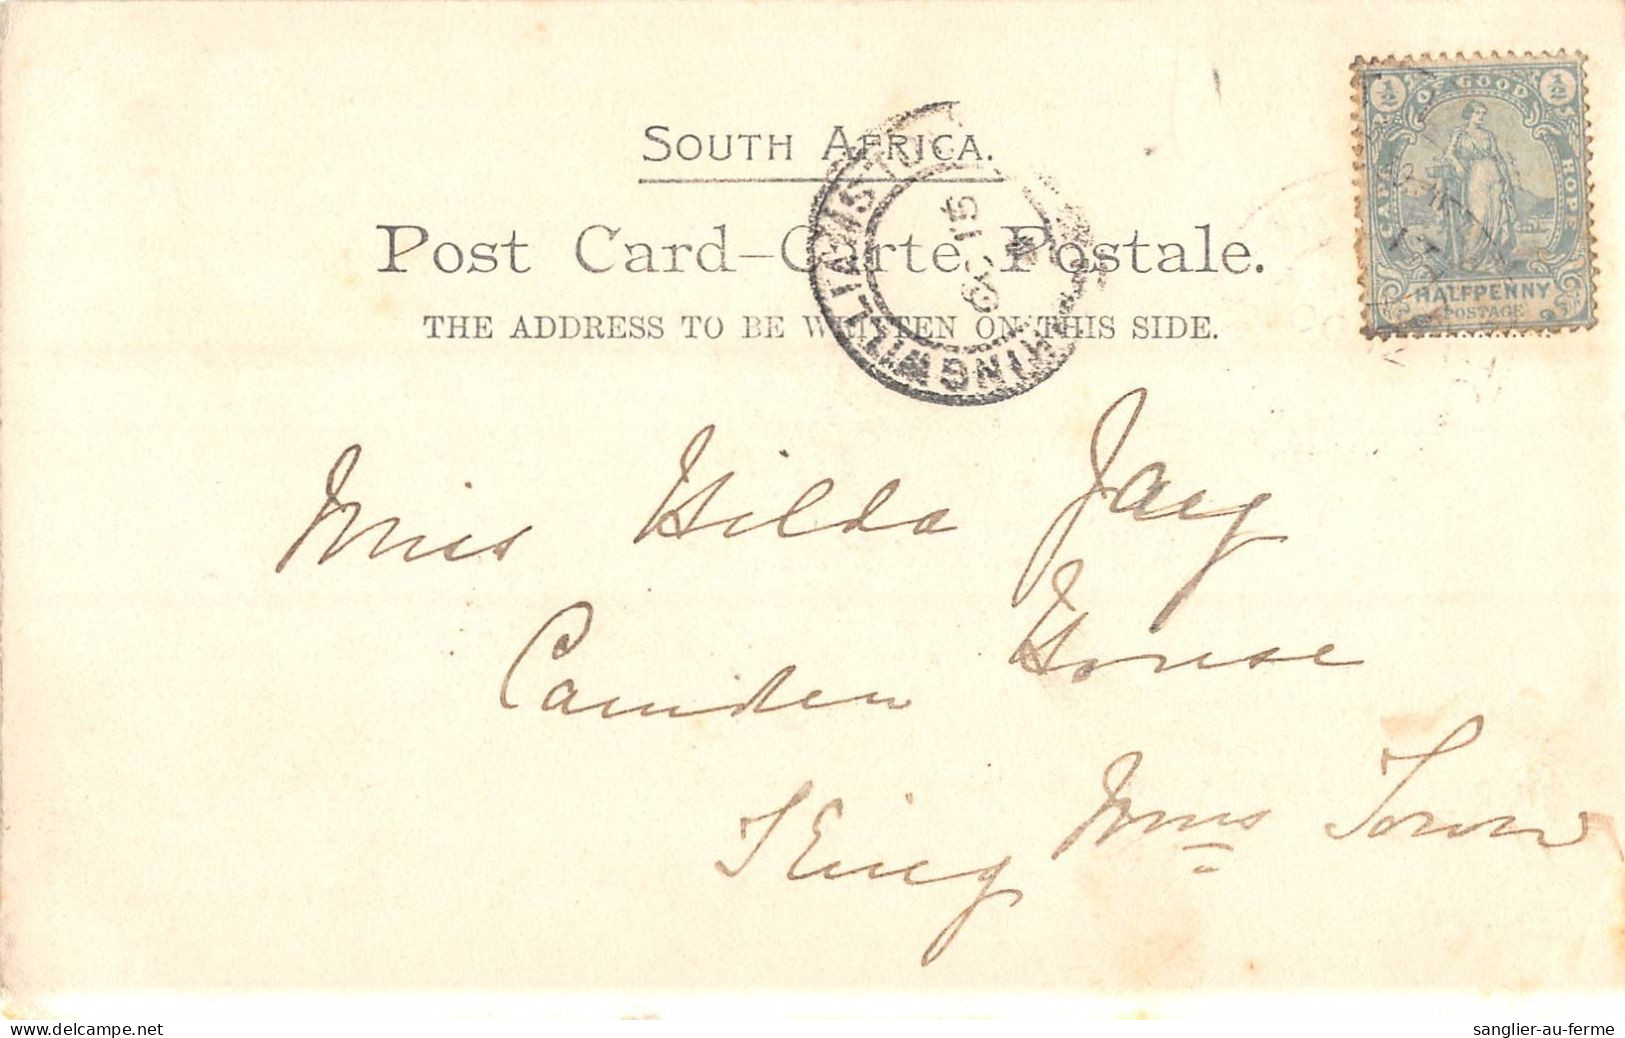 SOUTH AFRICA.
Post Card–Carte Postale.
THE ADDRESS TO BE WRITTEN ON THIS SIDE.
KINGWILLIAMSTO
15
½ OF GOOD ½
CAPE HOPE
HALFPENNY
POSTAGE
Miss Hilda
Camden House
King Wms Town
www.delcampe.net
sanglier-au-ferme